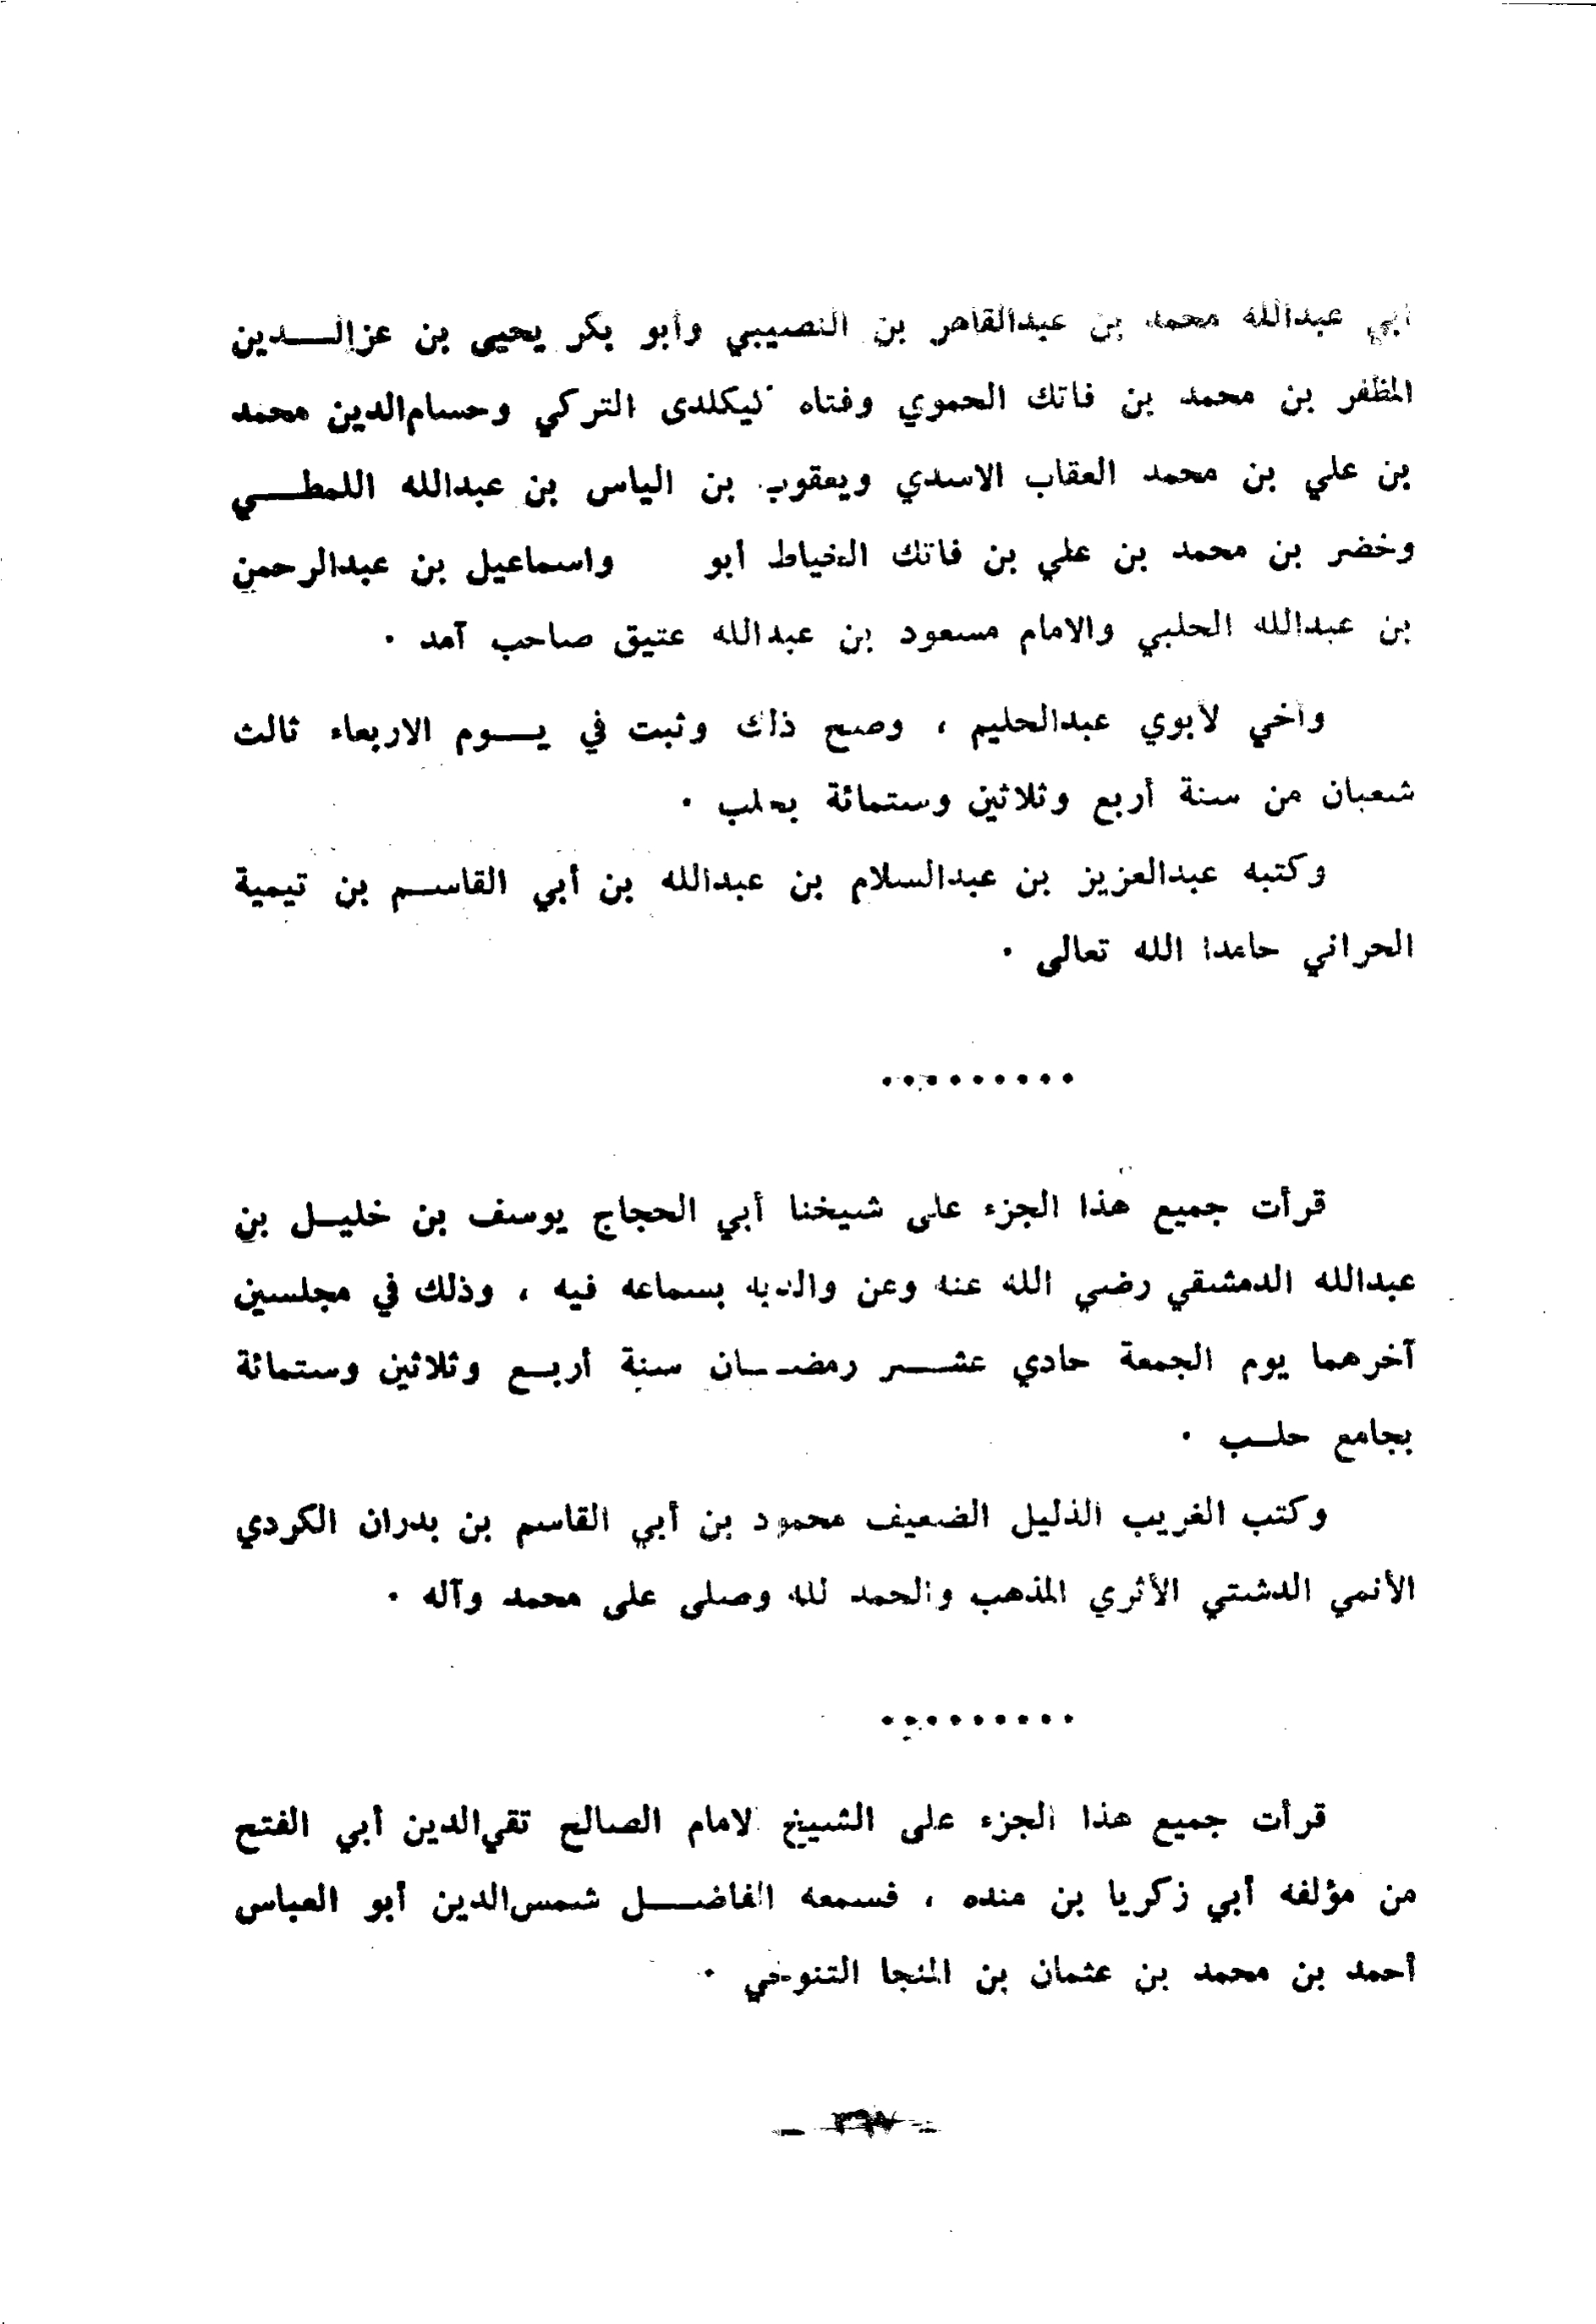 أبي عبدالله محمد بن عبدالقاهر بن النصيبي وأبو بكر يحيى بن عزالـــدين
المظفر بن محمد بن فاتك الحموي وفتاه ليكلدى التركي وحسام‌الدين محمد
بن علي بن محمد العقاب الاسدي ويعقوب بن الياس بن عبدالله اللمطـــي
وخضر بن محمد بن علي بن فاتك الخياط أبو واسماعيل بن عبدالرحمن
بن عبدالله الحلبي والامام مسعود بن عبدالله عتيق صاحب آمد ٠
وأخي لأبوي عبدالحليم ، وصح ذلك وثبت في يـــوم الاربعاء ثالث
شعبان من سنة أربع وثلاثين وستمائة بحلب ٠
وكتبه عبدالعزيز بن عبدالسلام بن عبدالله بن أبي القاســم بن تيمية
الحراني حامدا الله تعالى ٠
٠٠٠٠٠٠٠٠٠
قرأت جميع هذا الجزء على شيخنا أبي الحجاج يوسف بن خليــل بن
عبدالله الدمشقي رضي الله عنه وعن والديه بسماعه فيه ، وذلك في مجلسين
آخرهما يوم الجمعة حادي عشـــر رمضــان سنة أربــع وثلاثين وستمائة
بجامع حلــب ٠
وكتب الغريب الذليل الضعيف محمود بن أبي القاسم بن بدران الكردي
الأنمي الدشتي الأثري المذهب والحمد لله وصلى على محمد وآله ٠
٠٠٠٠٠٠٠٠٠
قرأت جميع هذا الجزء على الشيخ لامام الصالح تقي‌الدين أبي الفتح
من مؤلفه أبي زكريا بن منده ، فسمعه الفاضـــل شمس‌الدين أبو العباس
أحمد بن محمد بن عثمان بن المنجا التنوخي ٠
_ ٣٦٧ _